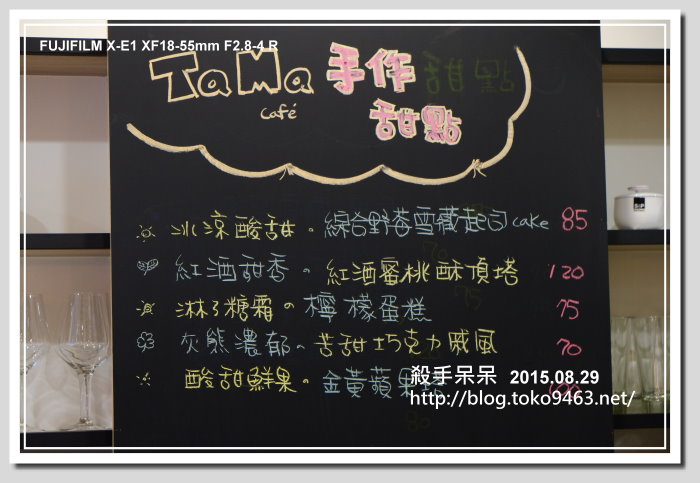 FUJIFILM X-E1 XF18-55mm F2.8-4 R
TaMa 手作 甜點
café 甜點
冰涼酸甜。綜合野莓雪藏起司cake 85
紅酒甜香。紅酒蜜桃酥頂塔 120
淋了糖霜の檸檬蛋糕 75
灰熊濃郁。苦甜巧克力戚風 70
酸甜鮮果。金黃蘋果塔 100
殺手呆呆 2015.08.29
http://blog.toko9463.net/
80